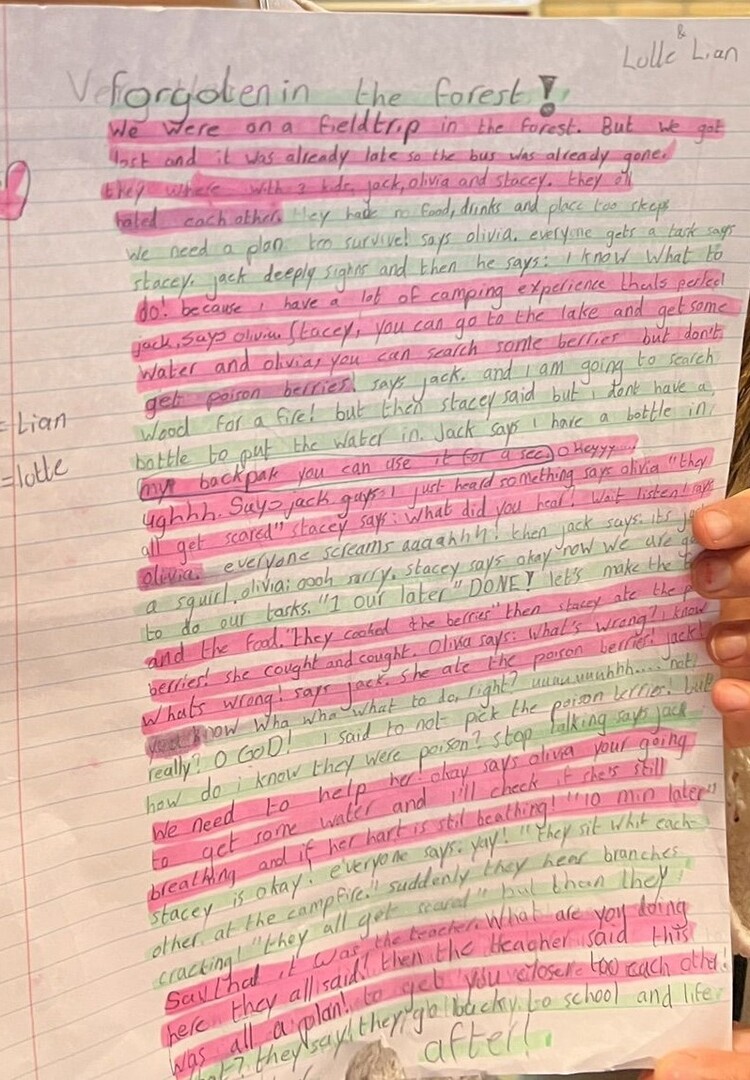 &
Lotte Lian
Ve forgotten in the forest!
We were on a fieldtrip in the forest. But we got
lost and it was already late so the bus was already gone.
they where with 3 kids, jack, olivia and stacey. they all
hated each other. they have no food, drinks and place too sleep
We need a plan too survive! says olivia. everyone gets a task says
stacey. jack deeply sighns and then he says: i know what to
do! because i have a lot of camping experience thats perfect
jack. says olivia. Stacey, you can go to the lake and get some
water and olivia, you can search some berries but don't
get poison berries! says jack. and i am going to search
wood for a fire! but then stacey said but i dont have a
bottle to put the water in. Jack says i have a bottle in
my backpak you can use it for a sec) OHeyyy...
ughhh. Says jack guys i just heard something says olivia "they
all get scared" stacey says: what did you hear? Wait listen! says
olivia. everyone screams aaaahhh! then jack says: its
a squirl. olivia: oooh sorry. stacey says okay now we are
to do our tasks. "1 our later" DONE! let's make the
and the food. "They cooked the berries" then stacey ate the
berries! she cought and cought. Olivia says: what's wrong? i know
whats wrong! says jack. She ate the poison berries! jack!
you know wha wha what to do, right? uuuuuuuhhh.... not
really? O GOD! I said to not pick the poison berries! but
how do i know they were poison? stop talking says jack
We need to help her! okay says olivia your going
to get some water and i'll check if she's still
breathing and if her hart is stil beathing! "10 min later"
stacey is okay! everyone says. yay! "they sit whit each
other at the campfire." suddenly they hear branches
cracting! "they all get scared" but than they
saw that it was the teacher. What are you doing
here they all said! then the teagher said this
was all a plan! to get you closer too each other!
they say! they go back to school and life
after!
= Lian
= lotte